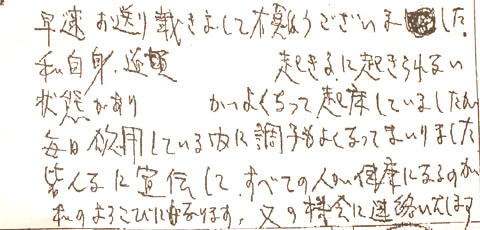 早速お送り戴きまして有難うございました。
私自身、 起きるに起きられない
状態があり かつよくなって起床していましたが
毎日飲用している内に調子もよくなってまいりました
皆んなに宣伝して、すべての人が健康になるのが
私のよろこびになります。又の機会に連絡いたします